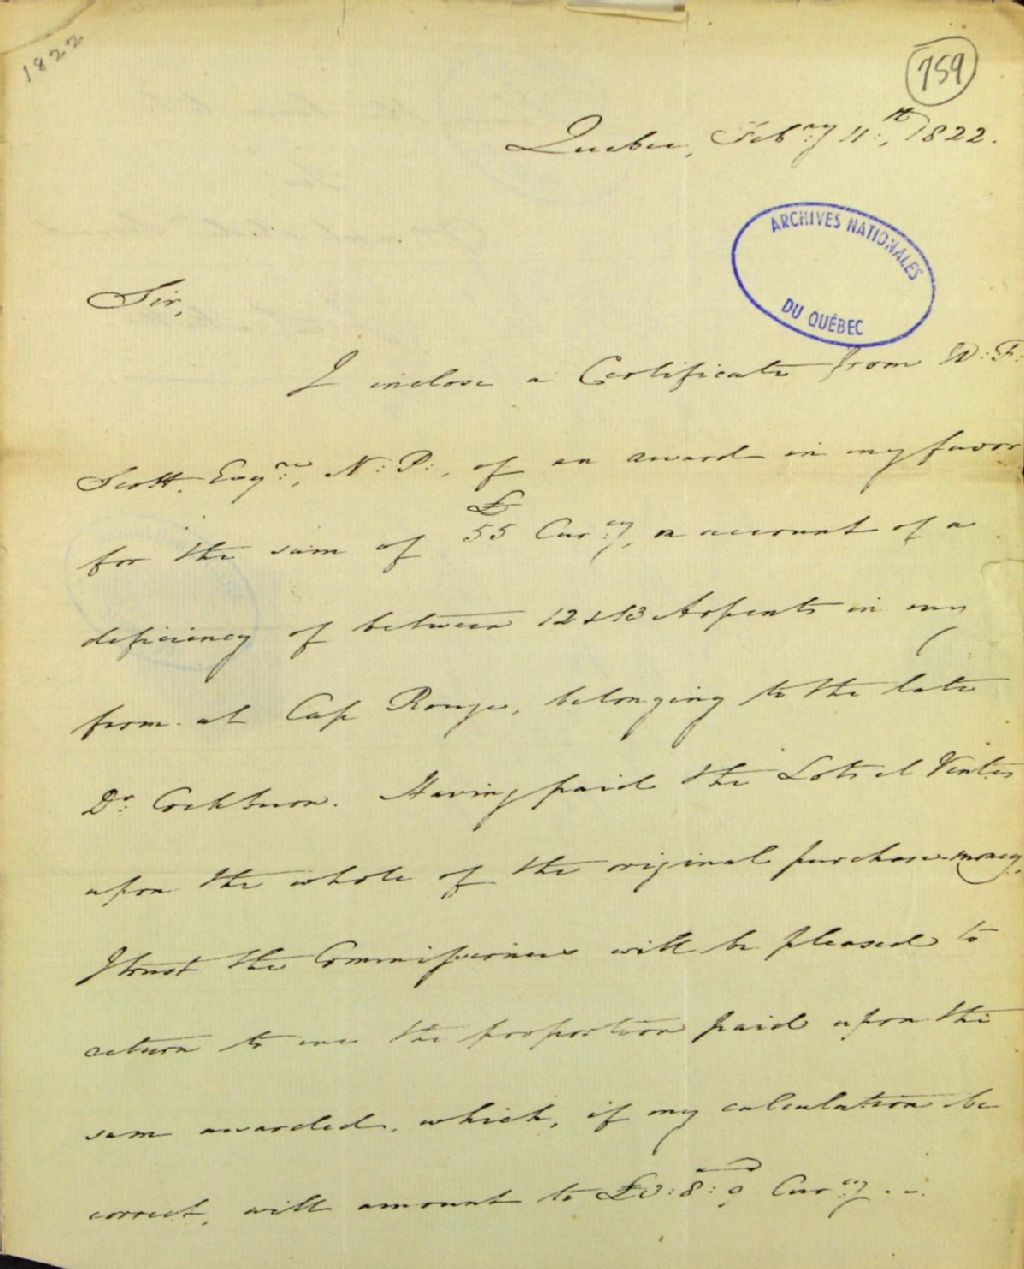 1822
759
Quebec, Feb:ry 11:th, 1822.
ARCHIVES NATIONALES
DU QUÉBEC
Sir,
I inclose a Certificate from W: F:
Scott, Esq:re, N: P:, of an award in my favor
for the sum of £55 Cur:cy, on account of a
deficiency of between 12 & 13 Arpents in my
farm at Cap Rouge, belonging to the late
Dr: Cockburn. Having paid the Lots et Ventes
upon the whole of the original purchase-money,
I trust the Commissioners will be pleased to
return to me the proportion paid upon the
sum awarded, which, if my calculation be
correct, will amount to Cur:cy. –.